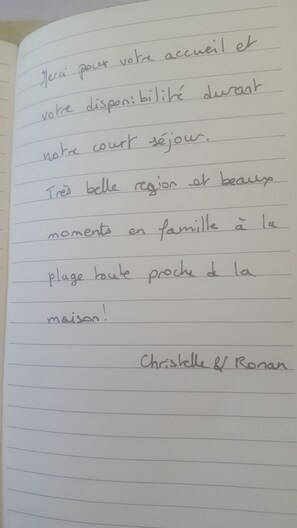 Merci pour votre accueil et
votre disponibilité durant
notre court séjour.
Très belle region et beaux
moments en famille à la
plage toute proche de la
maison!
Christelle & Ronan